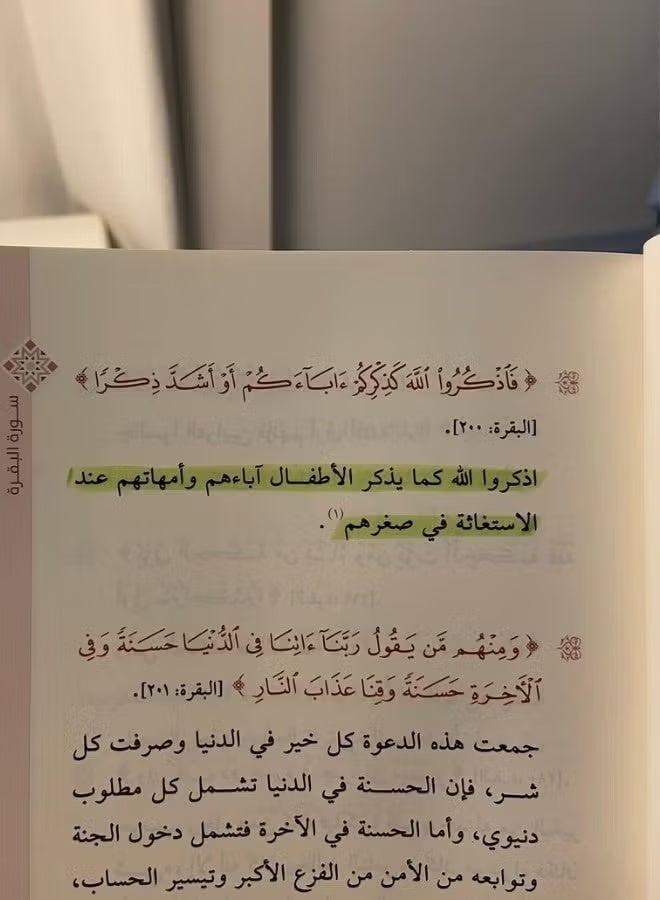 ﴿ فَٱذْكُرُوا۟ ٱللَّهَ كَذِكْرِكُمْ ءَابَآءَكُمْ أَوْ أَشَدَّ ذِكْرًا ﴾
[البقرة: ٢٠٠].
اذكروا الله كما يذكر الأطفال آباءهم وأمهاتهم عند
الاستغاثة في صغرهم(١).
﴿ وَمِنْهُم مَّن يَقُولُ رَبَّنَآ ءَاتِنَا فِى ٱلدُّنْيَا حَسَنَةً وَفِى
ٱلْأَخِرَةِ حَسَنَةً وَقِنَا عَذَابَ ٱلنَّارِ ﴾ [البقرة: ٢٠١].
جمعت هذه الدعوة كل خير في الدنيا وصرفت كل
شر، فإن الحسنة في الدنيا تشمل كل مطلوب
دنيوي، وأما الحسنة في الآخرة فتشمل دخول الجنة
وتوابعه من الأمن من الفزع الأكبر وتيسير الحساب،
سورة البقرة